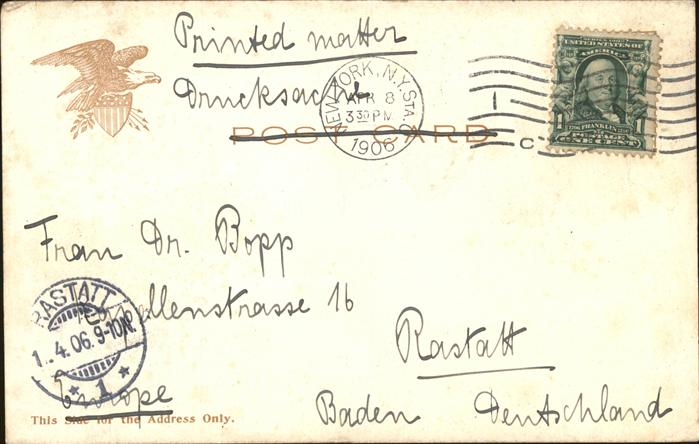 Printed matter
Drucksache
POST CARD
NEW YORK, N.Y. STA.
APR 8
3 30 PM
1906
1
C
SERIES 1902
UNITED STATES OF
AMERICA
1 FRANKLIN 1
POSTAGE
ONE CENT
Frau Dr. Bopp
Kapellenstrasse 16
Rastatt
Baden Deutschland
Europe
RASTATT
4.06.9-10N.
* 1 *
This Side for the Address Only.